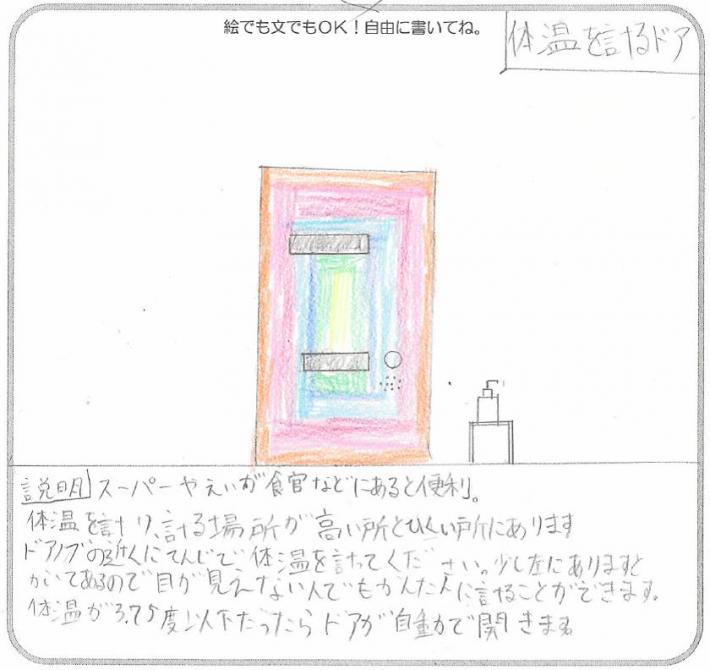 絵でも文でもOK！自由に書いてね。
体温を計るドア
説明 スーパーやえいが食官などにあると便利。
体温を計り、計る場所が高い所とひくい所にあります
ドアノブの近くにてんじで体温を計ってください。少し左にありますと
かいてあるので目が見えない人でもかんたんに計ることができます。
体温が3.75度以下だったらドアが自動で開きます